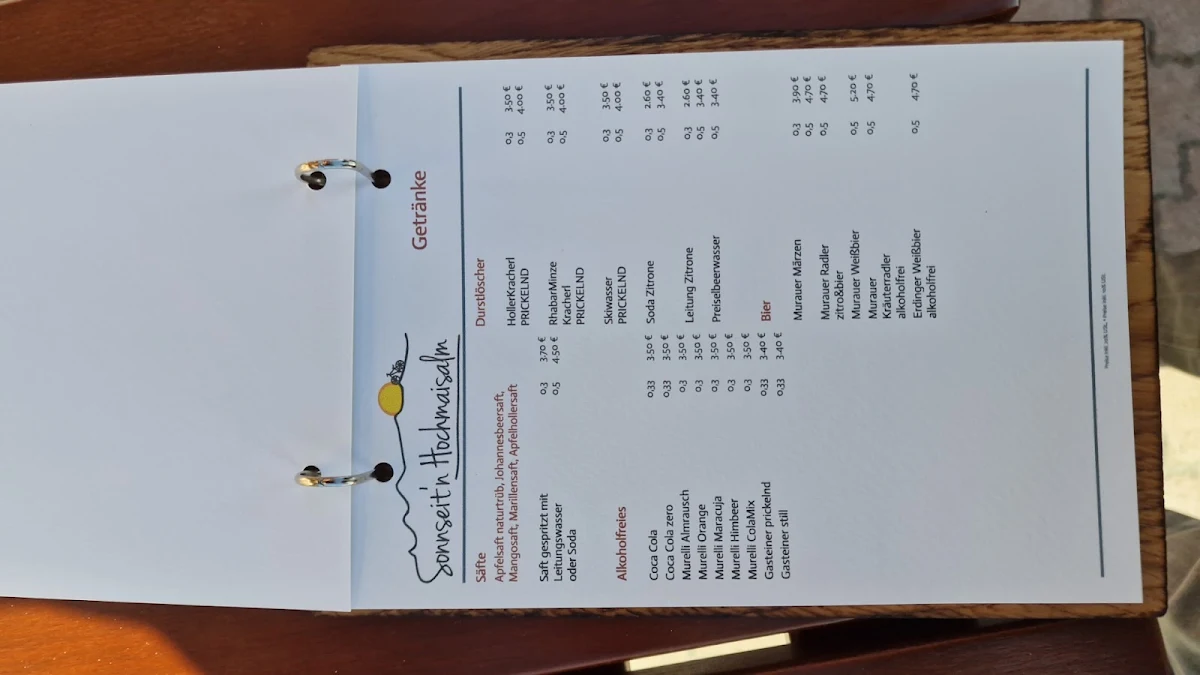 Sonnseit'n Hochmaisalm
Getränke
Säfte
Apfelsaft naturtrüb, Johannesbeersaft,
Mangosaft, Marillensaft, Apfelhollersaft
Saft gespritzt mit 0,3 3.70 €
Leitungswasser 0,5 4.50 €
oder Soda
Alkoholfreies
Coca Cola 0,33 3.50 €
Coca Cola zero 0,33 3.50 €
Murelli Almrausch 0,3 3.50 €
Murelli Orange 0,3 3.50 €
Murelli Maracuja 0,3 3.50 €
Murelli Himbeer 0,3 3.50 €
Murelli ColaMix 0,3 3.50 €
Gasteiner prickelnd 0,33 3.40 €
Gasteiner still 0,33 3.40 €
Durstlöscher
HollerKracherl 0,3 3.50 €
PRICKELND 0,5 4.00 €
RhabarMinze 0,3 3.50 €
Kracherl 0,5 4.00 €
PRICKELND
Skiwasser 0,3 3.50 €
PRICKELND 0,5 4.00 €
Soda Zitrone 0,3 2.60 €
0,5 3.40 €
Leitung Zitrone 0,3 2.60 €
0,5 3.40 €
Preiselbeerwasser 0,5 3.40 €
Bier
Murauer Märzen 0,3 3.90 €
0,5 4.70 €
Murauer Radler 0,5 4.70 €
zitro&bier
Murauer Weißbier 0,5 5.20 €
Murauer 0,5 4.70 €
Kräuterradler
alkoholfrei
Erdinger Weißbier 0,5 4.70 €
alkoholfrei